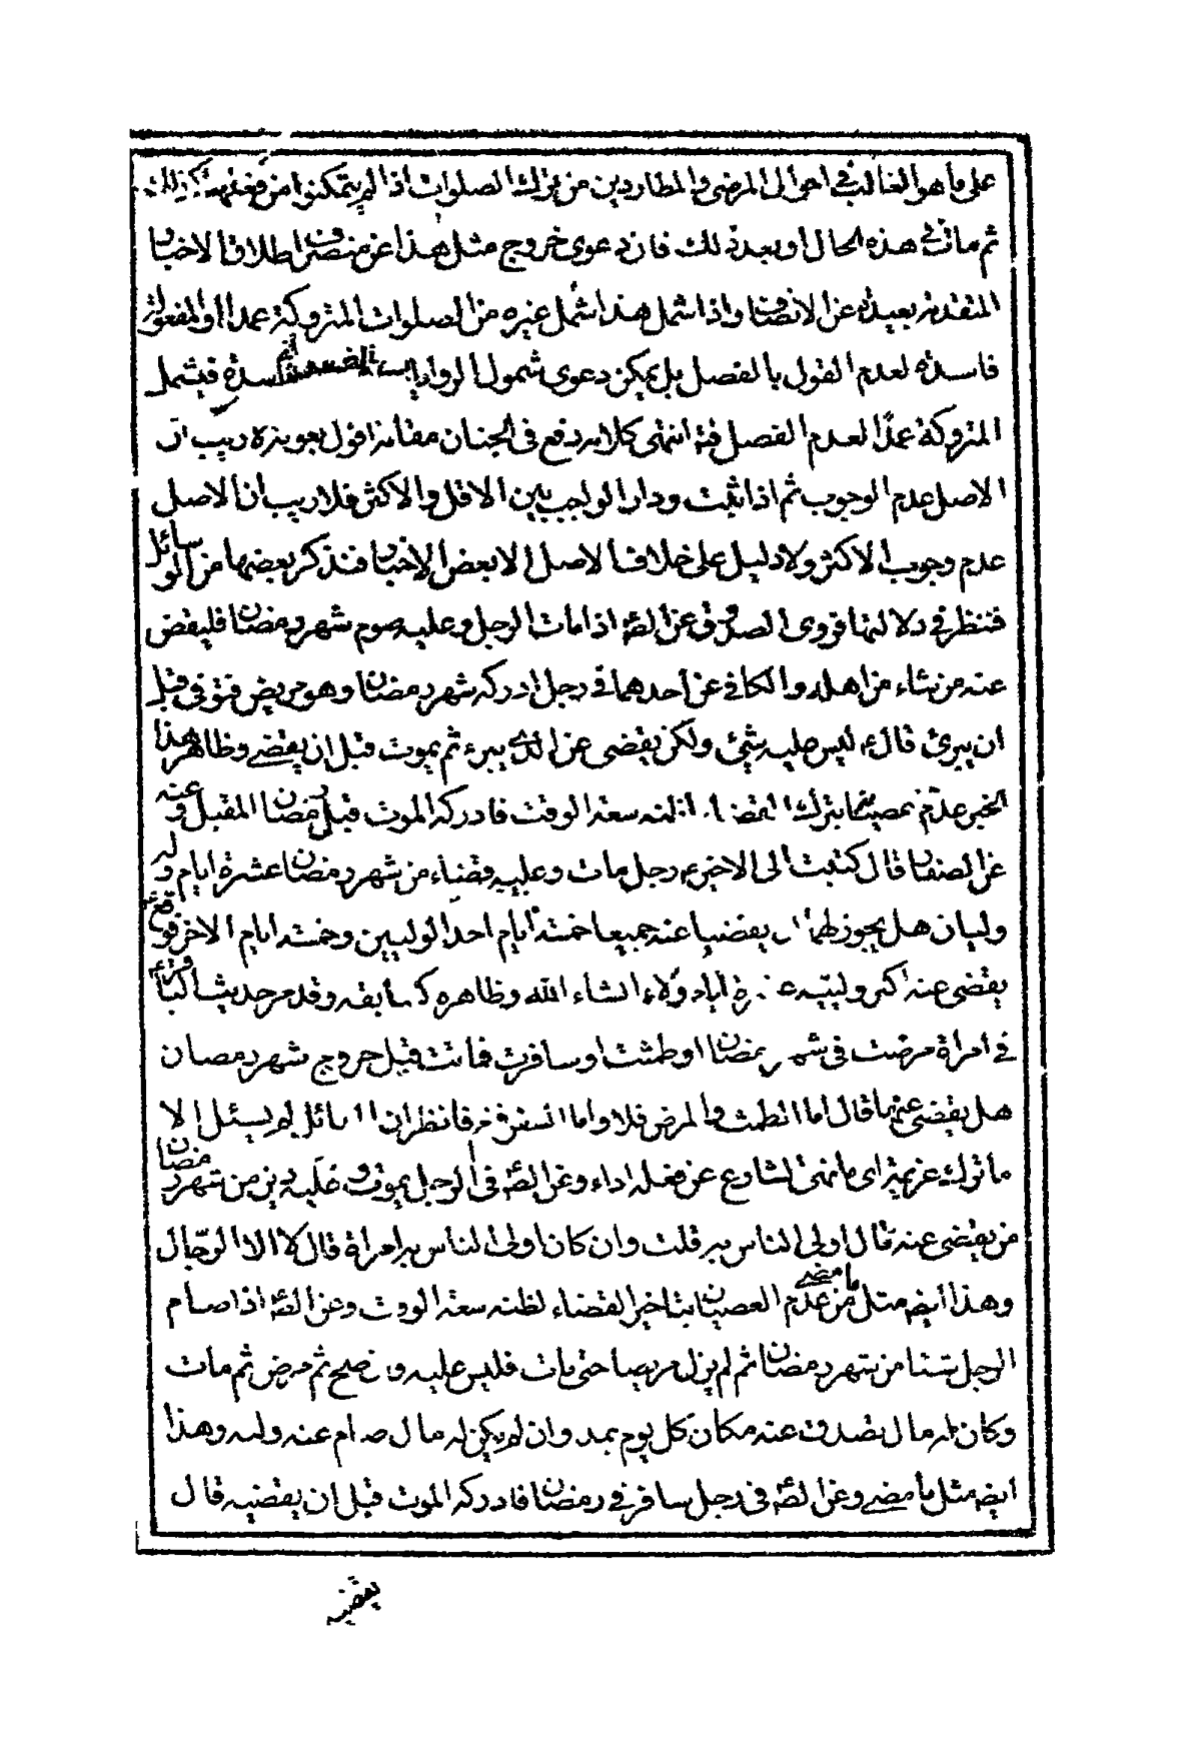 على ما هو الغالب في احوال المرضى والمطاردين من ترك الصلوات اذا لم يتمكنوا من فعلها كذلك
ثم مات في هذه الحال او بعد ذلك فان دعوى خروج مثل هذا عن منصرف اطلاق الاخبار
المتقدمة بعيدة عن الانصاف واذا شمل هذا شمل غيره من الصلوات المتروكة عمدا او المفعولة
فاسدة لعدم القول بالفصل بل يمكن دعوى شمول الرواية فاسدة فيشمل
المتروكة عمدًا لعدم الفصل فت انتهى كلامه رفع في الجنان مقامه اقول بعونه لا ريب ان
الاصل عدم الوجوب ثم اذا ثبت ودار الواجب بين الاقل والاكثر فلا ريب ان الاصل
عدم وجوب الاكثر ولا دليل على خلاف الاصل الا بعض الاخبار فنذكر بعضها من الوسائل
فننظر في دلالتها فروى الصدوق عن الصه اذا مات الرجل وعليه صوم شهر رمضان فليقض
عنه من شاء من اهله والكافي عن احدهما في رجل ادركه شهر رمضان وهو مريض فتوفى قبل
ان يبرئ قال ليس عليه شيئ ولكن يقضى عن الذي يبرء ثم يموت قبل ان يقضي وظاهر هذا
الخبر عدم عصيانه بترك القضاء لظنه سعة الوقت فادركه الموت قبل رمضان المقبل وعنه
عن الصفار قال كتبت الى الاخير رجل مات وعليه قضاء من شهر رمضان عشرة ايام وله
وليان هل يجوز لهما ان يقضيا عنه جميعا خمسة ايام احد الوليين وخمسة ايام الاخر فوقع
يقضى عنه اكبر ولييه عشرة ايام ولاء انشاء الله وظاهره كسابقه وقد مر حديث
في امراة مرضت في شهر رمضان او طمثت او سافرت فماتت قبل خروج شهر رمضان
هل يقضى عنها قال اما الطمث والمرض فلا واما السفر فنعم فانظر ان السائل لم يسئل الا
ما ترك عزيمة اى ما نهى الشارع عن فعله اداء وعن الصه في الرجل يموت وعليه دين من شهر رمضان
من يقضى عنه قال اولى الناس به قلت وان كان اولى الناس به امراة قال لا الا الرجال
وهذا ايضه مثل ما مضى من عدم العصيان بتاخير القضاء لظنه سعة الوقت وعن الصه اذا صام
الرجل شيئا من شهر رمضان ثم لم يزل مريضا حتى مات فليس عليه وان صح ثم مرض ثم مات
وكان له مال تصدق عنه مكان كل يوم بمد وان لم يكن له مال صام عنه وليه وهذا
ايضه مثل ما مضى وعن الصه في رجل سافر في رمضان فادركه الموت قبل ان يقضيه قال
يقضيه